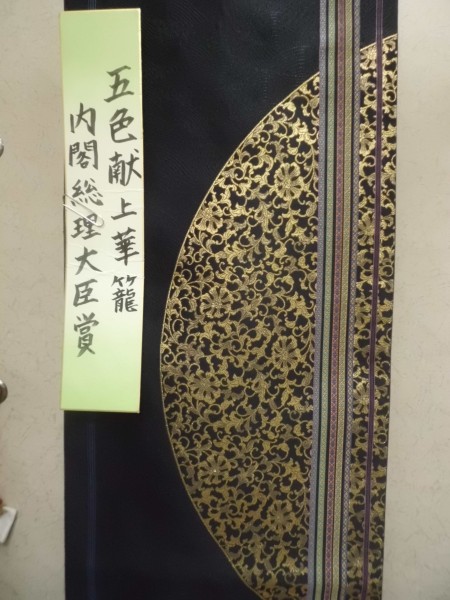 五色献上華籠
内閣総理大臣賞